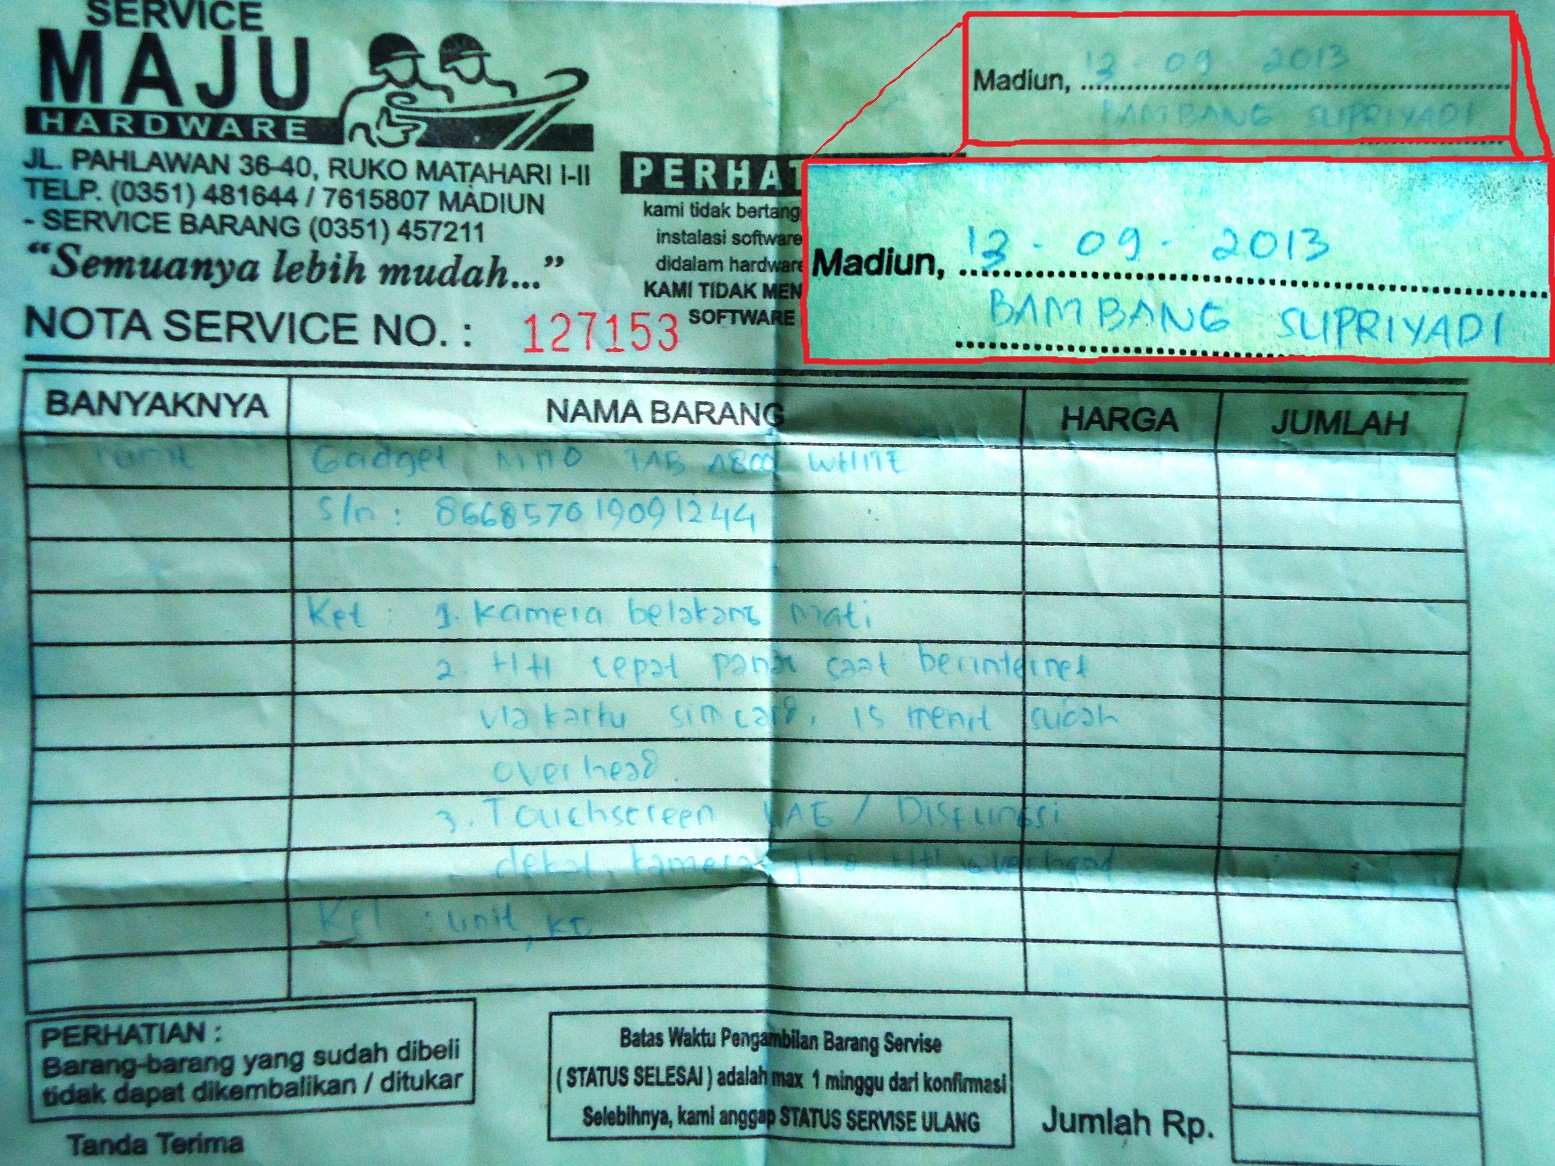 SERVICE
MAJU
HARDWARE
JL. PAHLAWAN 36-40, RUKO MATAHARI I-II
TELP. (0351) 481644 / 7615807 MADIUN
- SERVICE BARANG (0351) 457211
“Semuanya lebih mudah...”
NOTA SERVICE NO. : 127153
Madiun, 13 - 09 - 2013
BAMBANG SUPRIYADI
PERHAT
kami tidak bertang
instalasi software
didalam hardware
KAMI TIDAK MEN
SOFTWARE
Madiun, 13 - 09 - 2013
BAMBANG SUPRIYADI
BANYAKNYA NAMA BARANG HARGA JUMLAH
1 unit Gadget MITO TAB A800 WHITE
S/n : 866857019091244
Ket : 1. Kamera belakang mati
2. HH cepat panas saat berinternet
via kartu simcard, 15 menit sudah
overhead.
3. Touchscreen LAG / Disfungsi
dekat kamera jika HH overhead
Kel : unit,
PERHATIAN :
Barang-barang yang sudah dibeli
tidak dapat dikembalikan / ditukar
Batas Waktu Pengambilan Barang Servise
( STATUS SELESAI ) adalah max 1 minggu dari konfirmasi
Selebihnya, kami anggap STATUS SERVISE ULANG
Jumlah Rp.
Tanda Terima